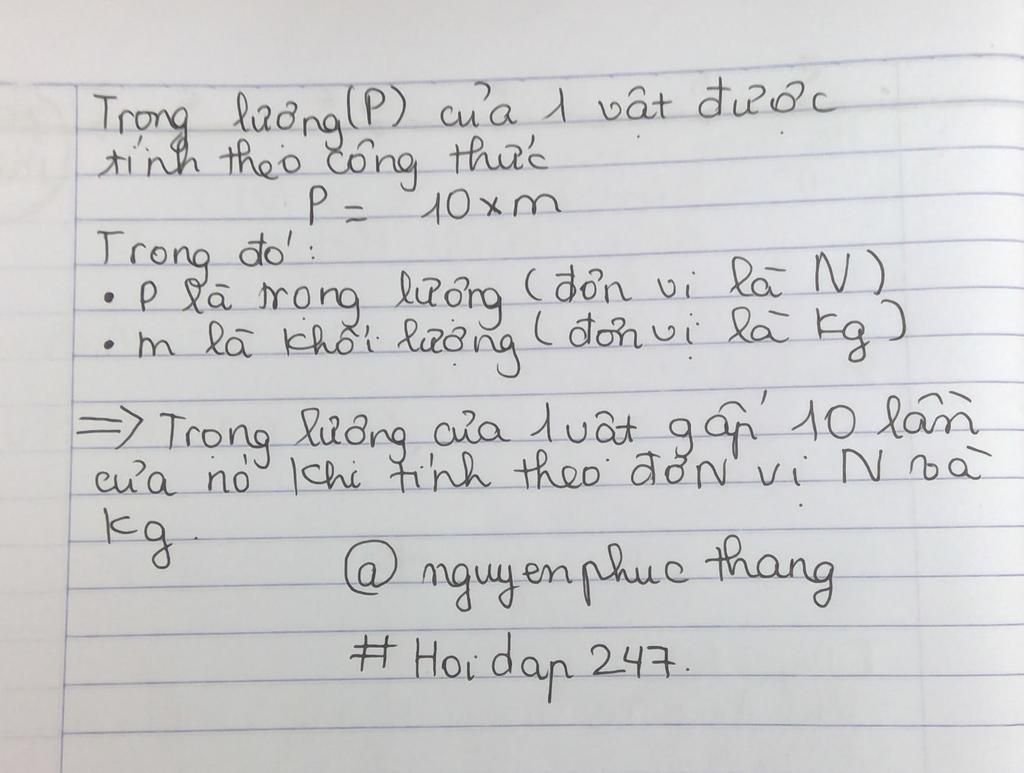 Trọng lượng(P) của 1 vật được
tính theo công thức
P = 10xm
Trong đó:
• P là trọng lượng (đơn vi là N)
• m là khối lượng (đơn vị là kg)
=> Trong lượng của 1 vật gấp 10 lần
của nó khi tính theo đơN vị N và
kg.
@ nguyenphuc thang
# Hoi dap 247.